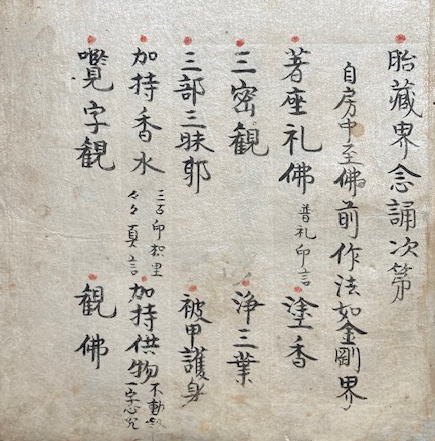 胎藏界念誦次第
自房中至佛前作法如金剛界
著座礼佛 普礼印言 塗香
三密観 浄三業
三部三昧耶 被甲護身
加持香水 三古印枳里々々真言 加持供物 不動 一字心咒
字観 観佛